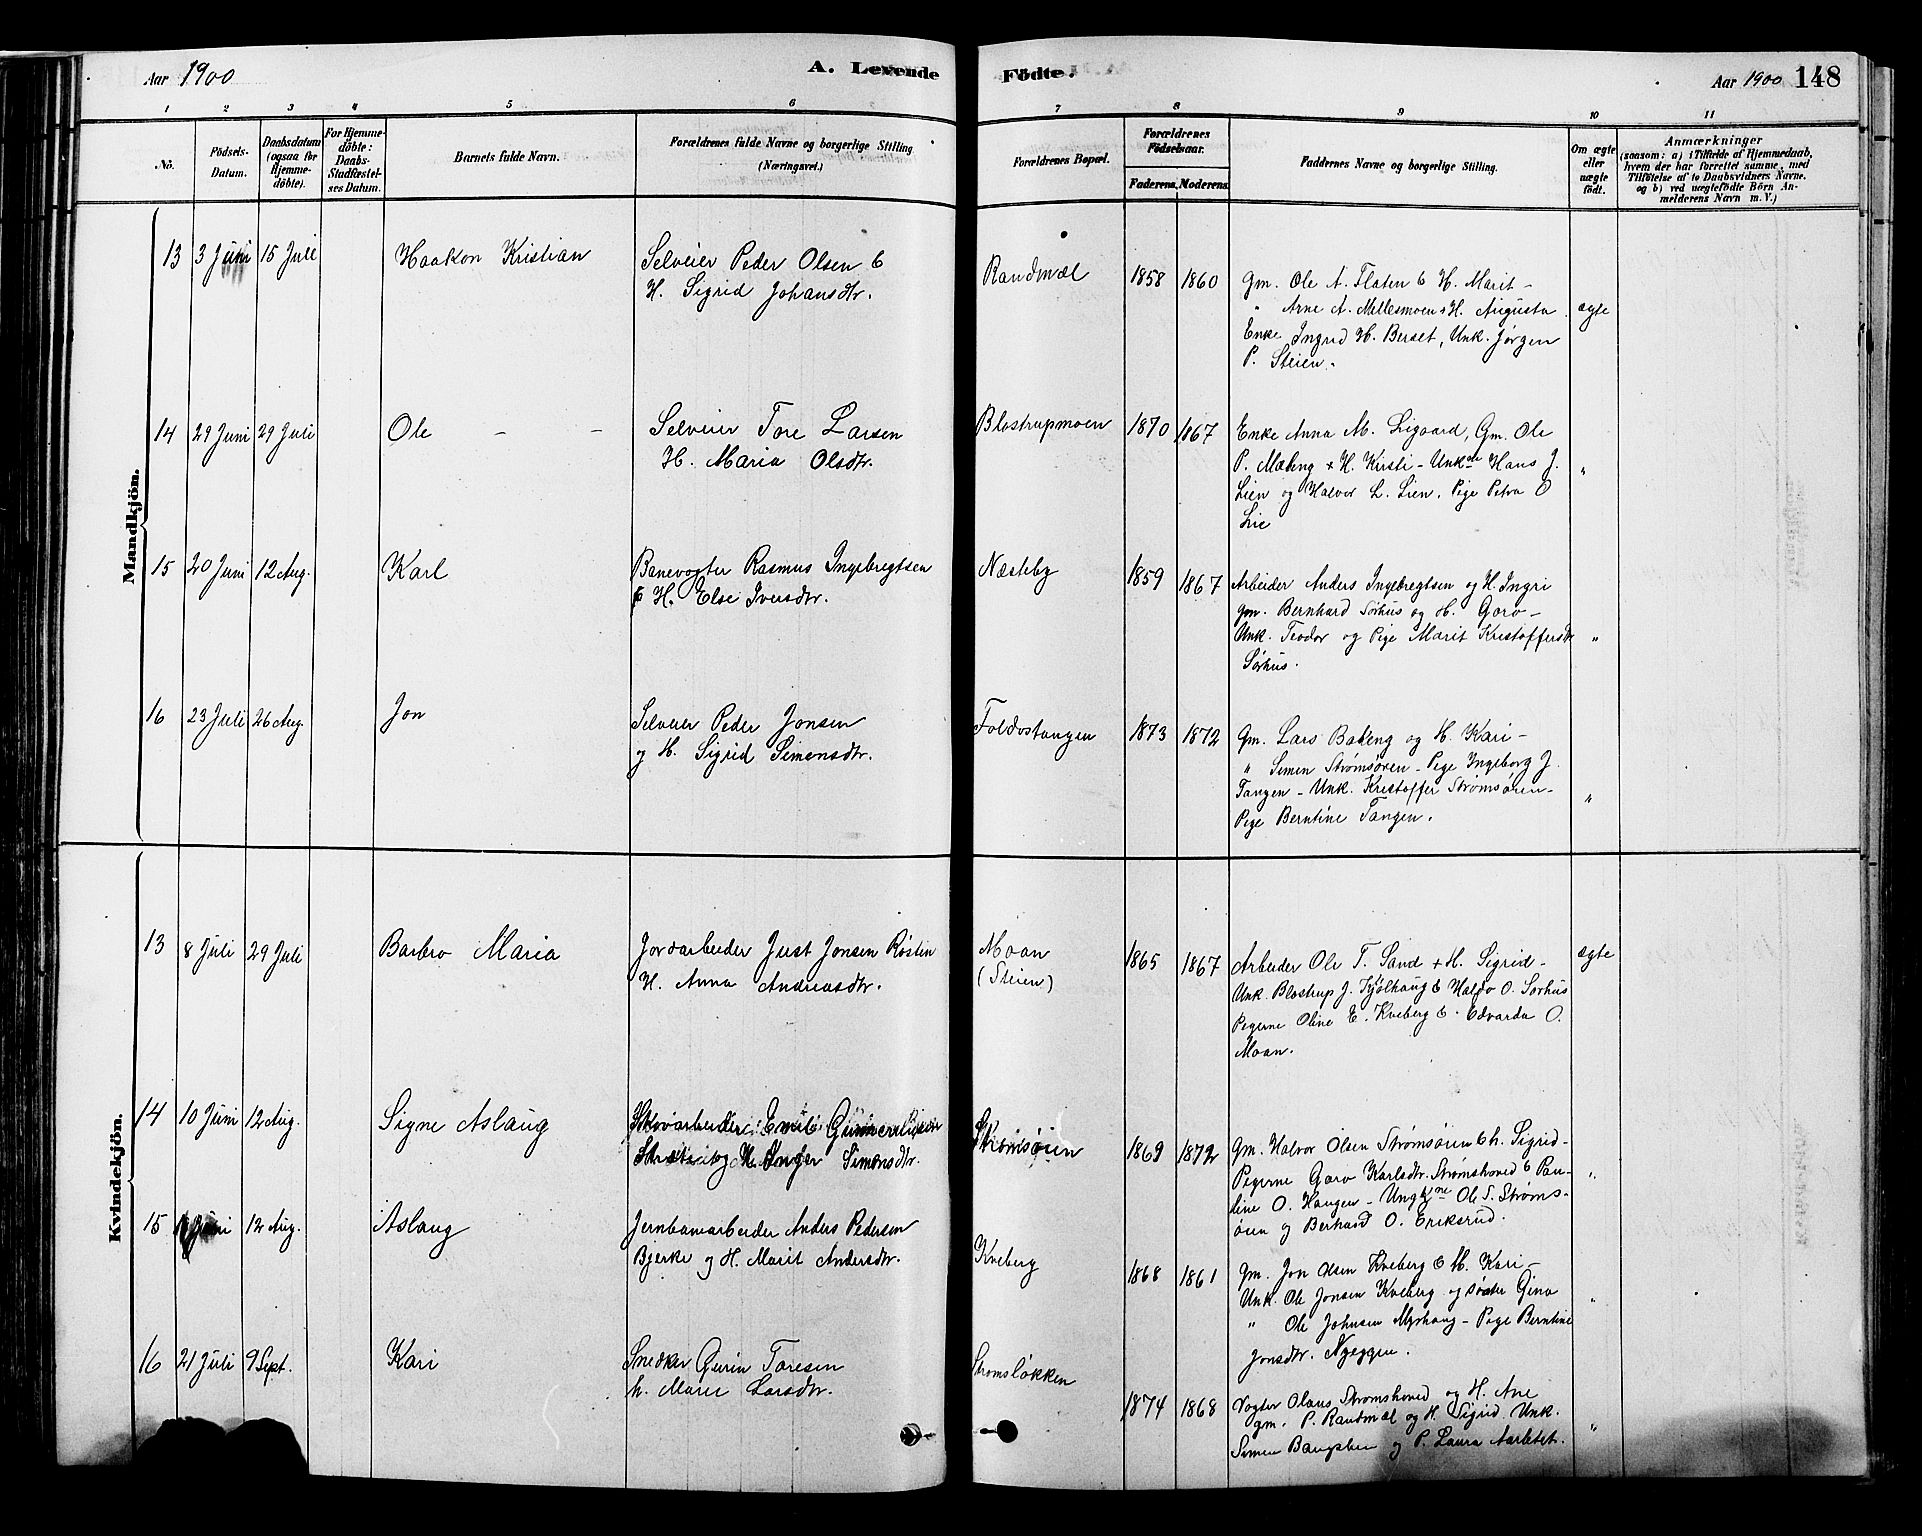 Aar 1900
A. Levende
Födte.
Aar 1900 148
1 2 3 4 5 6 7 8 9 10 11
No.
Födsels-
Datum.
Daabsdatum
(ogsaa for
Hjemme-
döbte).
For Hjemme-
döbte:
Daabs-
Stadfæstel-
ses Datum.
Barnets fulde Navn.
Forældrenes fulde Navne og borgerlige Stilling
(Næringsvei.)
Forældrenes Bopæl.
Forældrenes
Födselsaar.
Faderens. Moderens.
Faddernes Navne og borgerlige Stilling.
Om ægte
eller
uægte
födt.
Anmærkninger
(saasom: a) i Tilfælde af Hjemmedaab,
hvem der har forrettet samme, med
Tilföielse af to Daabsvidners Navne.
og b) ved uægtefödte Börn An-
melderens Navn m. V.)
Mandkjön.
13 3 Juni 15 Juli Haakon Kristian
Selveier Peder Olsen &
H. Sigrid Johansdtr.
Randmæl 1858 1860
Gm. Ole A. Flaten & H. Marit -
" Arne A. Mellesmoen & H. Augusta
Enke Ingrid H. Berset, Unk. Jørgen
P. Steien.
ægte
14 29 Juni 29 Juli Ole - -
Selveier Tore Larsen
H. Maria Olsdtr.
Blostrupmoen 1870 1867
Enke Anna M. Ligaard, Gm. Ole
P. Mæhng + H. Kirsti - Unkne Hans J.
Lien og Halvor L. Lien. Pige Petra O
Lie
"
15 20 Juni 12 Aug. Karl
Banevogter Rasmus Ingebregtsen
& H. Else Iversdtr.
Næsteby 1859 1867
Arbeider Anders Ingebregtsen og H. Ingri
gm. Bernhard Sørhus og H. Goro -
Unk. Teodor og Pige Marit Kristoffersdtr
Sørhus.
"
16 23 Juli 26 Aug. Jon
Selveier Peder Jonsen
og H. Sigrid Simensdtr.
Foldvstangen 1873 1872
Gm. Lars Bakeng og H. Kari -
" Simen Strømsøren - Pige Ingeborg J.
Tangen - Unk. Kristoffer Strømsøien -
Pige Berntine Tangen.
"
Kvindekjön.
13 8 Juli 29 Juli Barbro Maria
Jordarbeider Just Jonsen Røstin
H. Anna Andreasdtr.
Moan
(Steien)
1865 1867
Arbeider Ole T. Sand + H. Sigrid -
Unk. Blostrup J. Kjølhaug & Halvo O. Sørhus
Pigerne Oline E. Kveberg & Edvarda O.
Moan.
ægte
14 10 Juni 12 Aug. Signe Aslaug
Skovarbeider Emil
og H. Inger Simensdtr.
Strømsøien 1869 1872
Gm. Halvor Olsen Strømsøien & h. Sigrid -
Pigerne Goro Karlsdtr. Strømshoved & Pau-
line O. Haugen - Ungkne Ole S. Strøms-
øien og Berhard O. Eriksrud.
"
15 Juni 12 Aug. Aslaug
Jernbanarbeider Anders Pedersen
Bjerke og H. Marit Andersdtr.
Kveberg 1868 1861
Gm. Jon Olsen Kveberg & H. Kari -
Unk. Ole Jonsen Kveberg og søster Gina
" Ole Johnsen Myrhaug - Pige Berntine
Jonsdtr. Nyeggen.
"
16 21 Juli 9 Sept. Kari
Snedker Gurin Toresen
h. Marie Larsdtr.
Strømsløkken
1874 1868
Vogter Olaus Strømshoved og H. Ane
gm. P. Randmæl og H. Sigrid. Unk.
Simen og P. Laura Aarletet.
"